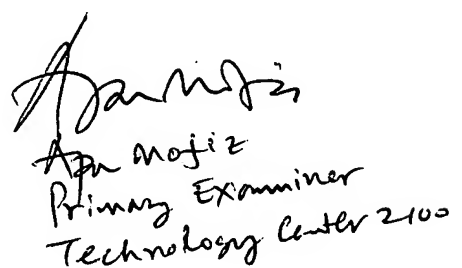 Apu Mofiz
Primary Examiner
Technology Center 2100